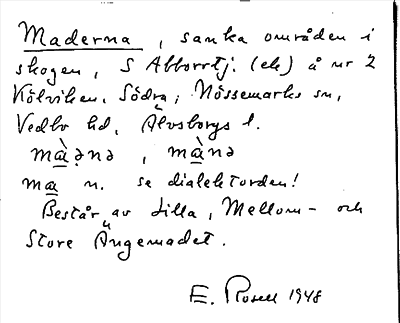 Maderna, sanka områden i
skogen, S Abborrtj. (ek) å nr 2
Kölviken, Södra; Nössemarks sn,
Vedbo hd, Älvsborgs l.
mà̲ənə, mà̲nə
ma̲ n. se dialektorden!
Består av Lilla, Mellom- och
Store Ängemadet.
E. Rosell 1948